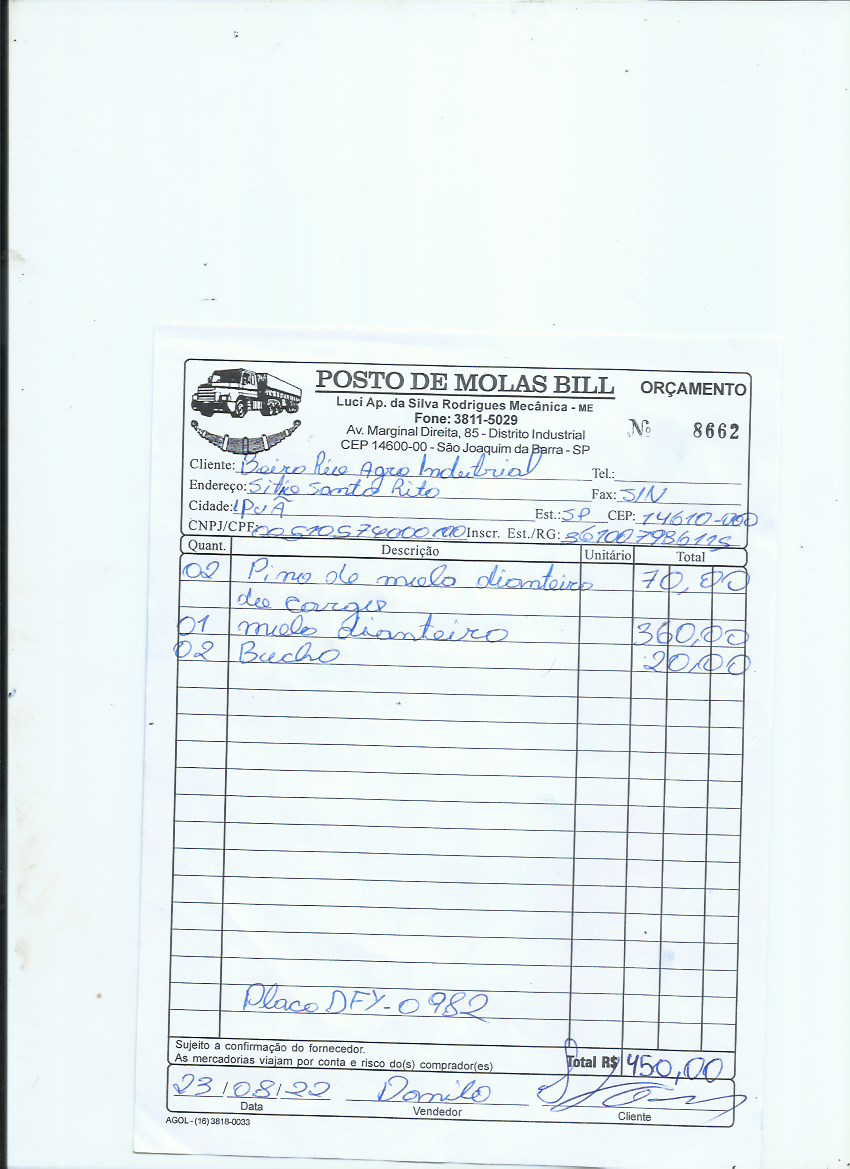 POSTO DE MOLAS BILL
ORÇAMENTO
Luci Ap. da Silva Rodrigues Mecânica - ME
Fone: 3811-5029
Av. Marginal Direita, 85 - Distrito Industrial
CEP 14600-00 - São Joaquim da Barra - SP
Nº 8662
Cliente: Beira Rio Agro Industrial Tel.:
Endereço: Sitio Santa Rita Fax: S/N
Cidade: IPUÃ Est.: SP CEP: 14610-000
CNPJ/CPF Inscr. Est./RG:
Quant. Descrição Unitário Total
02 Pino de mola dianteiro 70,00
de carga
01 mola dianteiro 360,00
02 Bucha 20,00
Placa DFY-0982
Sujeito a confirmação do fornecedor.
As mercadorias viajam por conta e risco do(s) comprador(es)
Total R$ 450,00
23/08/22 Danilo
Data Vendedor Cliente
AGOL - (16) 3818-0033